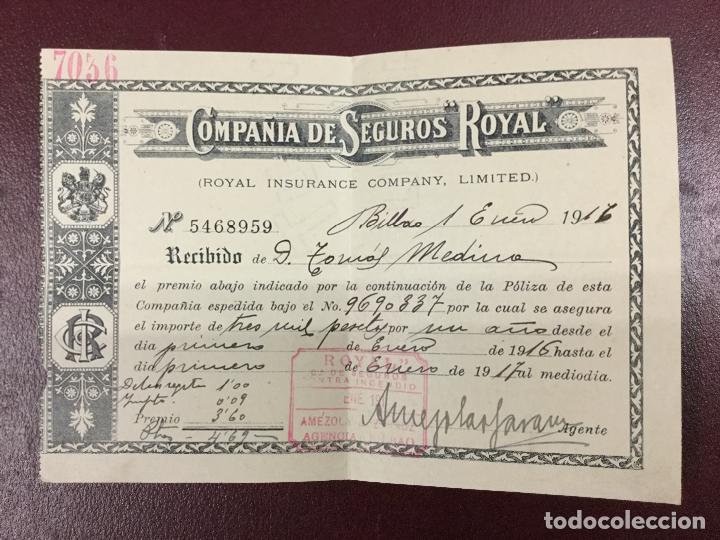 7036
COMPAÑIA DE SEGUROS "ROYAL"
(ROYAL INSURANCE COMPANY, LIMITED.)
Nº 5468959 Bilbao 1 Enero 1916
Recibido de D. Tomás Medina
el premio abajo indicado por la continuación de la Póliza de esta
Compañia espedida bajo el No. 9690337 por la cual se asegura
el importe de tres mil pesetas por un año desde el
dia primero de Enero de 1916 hasta el
dia primero de Enero de 1917 al mediodia
1'00
0'09
Premio 3'60
4'69
ROYAL"
Cª DE SEGUROS
CONTRA INCENDIO
ENE 19
AGENCIA
Agente
todocoleccion.net